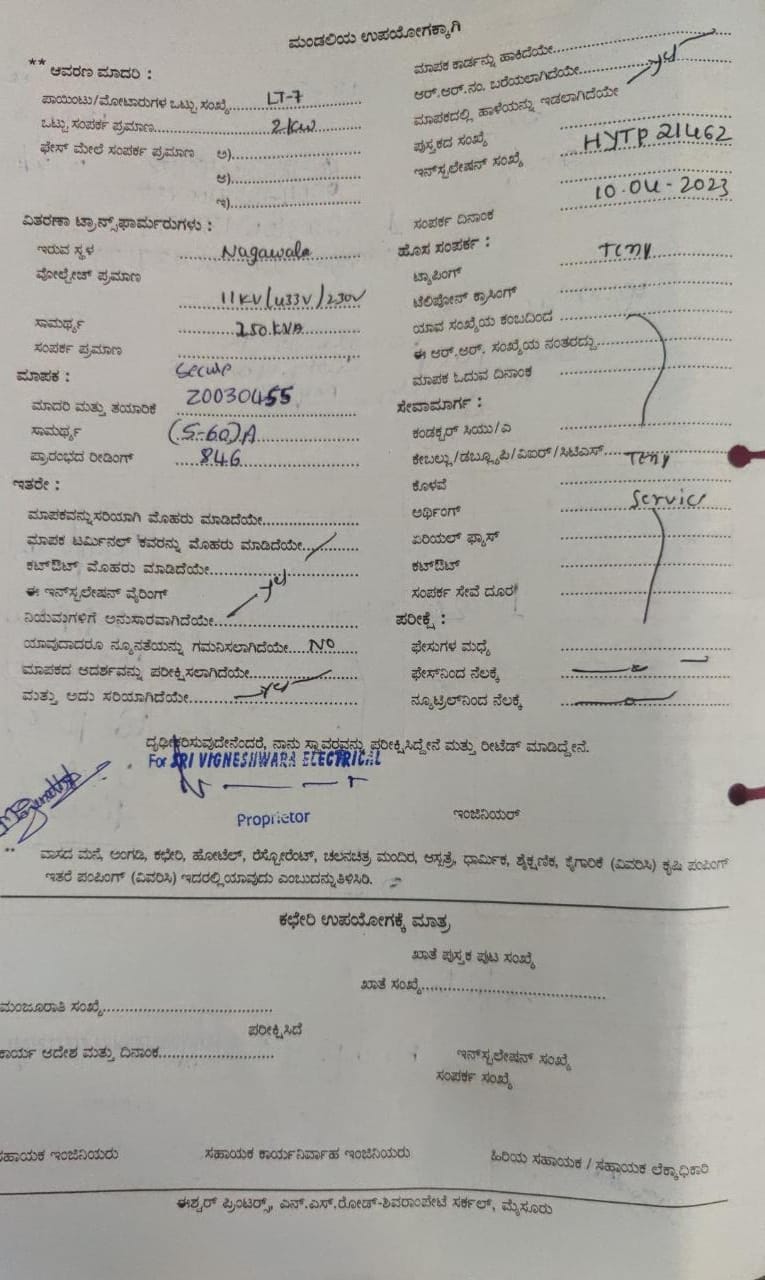 ಮಂಡಲಿಯ ಉಪಯೋಗಕ್ಕಾಗಿ
** ಆವರಣ ಮಾದರಿ :
ಪಾಯಿಂಟು/ಮೋಟಾರುಗಳ ಒಟ್ಟು ಸಂಖ್ಯೆ LT-7
ಒಟ್ಟು ಸಂಪರ್ಕ ಪ್ರಮಾಣ 2 KW
ಫೇಸ್ ಮೇಲೆ ಸಂಪರ್ಕ ಪ್ರಮಾಣ ಅ)
ಆ)
ಇ)
ವಿತರಣಾ ಟ್ರಾನ್ಸ್‌ಫಾರ್ಮರುಗಳು :
ಇರುವ ಸ್ಥಳ Nagawala
ವೋಲ್ಟೇಜ್ ಪ್ರಮಾಣ
11KV/433V/230V
ಸಾಮರ್ಥ್ಯ 250.KVA
ಸಂಪರ್ಕ ಪ್ರಮಾಣ
ಮಾಪಕ : Secure
ಮಾದರಿ ಮತ್ತು ತಯಾರಿಕೆ 20030455
ಸಾಮರ್ಥ್ಯ (5-60)A
ಪ್ರಾರಂಭದ ರೀಡಿಂಗ್ 846
ಇತರೇ :
ಮಾಪಕವನ್ನು ಸರಿಯಾಗಿ ಮೊಹರು ಮಾಡಿದೆಯೇ
ಮಾಪಕ ಟರ್ಮಿನಲ್ ಕವರನ್ನು ಮೊಹರು ಮಾಡಿದೆಯೇ
ಕಟ್‌ಔಟ್ ಮೊಹರು ಮಾಡಿದೆಯೇ
ಈ ಇನ್‌ಸ್ಟಲೇಷನ್ ವೈರಿಂಗ್
ನಿಯಮಗಳಿಗೆ ಅನುಸಾರವಾಗಿದೆಯೇ
ಯಾವುದಾದರೂ ನ್ಯೂನತೆಯನ್ನು ಗಮನಿಸಲಾಗಿದೆಯೇ NO
ಮಾಪಕದ ಆದರ್ಶವನ್ನು ಪರೀಕ್ಷಿಸಲಾಗಿದೆಯೇ
ಮತ್ತು ಅದು ಸರಿಯಾಗಿದೆಯೇ
ಮಾಪಕ ಕಾರ್ಡನ್ನು ಹಾಕಿದೆಯೇ
ಆರ್.ಆರ್.ನಂ. ಬರೆಯಲಾಗಿದೆಯೇ
ಮಾಪಕದಲ್ಲಿ ಹಾಳೆಯನ್ನು ಇಡಲಾಗಿದೆಯೇ
ಪುಸ್ತಕದ ಸಂಖ್ಯೆ
ಇನ್‌ಸ್ಟಲೇಷನ್ ಸಂಖ್ಯೆ HYTP 21462
ಸಂಪರ್ಕ ದಿನಾಂಕ 10.04-2023
ಹೊಸ ಸಂಪರ್ಕ :
ಟ್ಯಾಪಿಂಗ್
ಟೆಲಿಫೋನ್ ಕ್ರಾಸಿಂಗ್
ಯಾವ ಸಂಖ್ಯೆಯ ಕಂಬದಿಂದ
ಈ ಆರ್.ಆರ್. ಸಂಖ್ಯೆಯ ನಂತರದ್ದು
ಮಾಪಕ ಓದುವ ದಿನಾಂಕ
ಸೇವಾಮಾರ್ಗ :
ಕಂಡಕ್ಟರ್ ಸಿಯು/ಎ
ಕೇಬಲ್ಲು/ಡಬ್ಲ್ಯೂಪಿ/ವಿಐಆರ್/ಸಿಟಿಎಸ್
ಕೊಳವೆ
ಅರ್ಥಿಂಗ್ Service
ಏರಿಯಲ್ ಫ್ಯೂಸ್
ಕಟ್‌ಔಟ್
ಸಂಪರ್ಕ ಸೇವೆ ದೂರ
ಪರೀಕ್ಷೆ :
ಫೇಸುಗಳ ಮಧ್ಯೆ
ಫೇಸ್‌ನಿಂದ ನೆಲಕ್ಕೆ
ನ್ಯೂಟ್ರಲ್‌ನಿಂದ ನೆಲಕ್ಕೆ
ದೃಢೀಕರಿಸುವುದೇನೆಂದರೆ, ನಾನು ಸ್ಥಾವರವನ್ನು ಪರೀಕ್ಷಿಸಿದ್ದೇನೆ ಮತ್ತು ರೀಟೆಡ್ ಮಾಡಿದ್ದೇನೆ.
For SRI VIGNESHWARA ELECTRICAL
Proprietor
ಇಂಜಿನಿಯರ್
** ವಾಸದ ಮನೆ, ಅಂಗಡಿ, ಕಛೇರಿ, ಹೋಟೆಲ್, ರೆಸ್ಟೋರೆಂಟ್, ಚಲನಚಿತ್ರ ಮಂದಿರ, ಆಸ್ಪತ್ರೆ, ಧಾರ್ಮಿಕ, ಶೈಕ್ಷಣಿಕ, ಕೈಗಾರಿಕೆ (ವಿವರಿಸಿ) ಕೃಷಿ ಪಂಪಿಂಗ್
ಇತರೆ ಪಂಪಿಂಗ್ (ವಿವರಿಸಿ) ಇದರಲ್ಲಿ ಯಾವುದು ಎಂಬುದನ್ನು ತಿಳಿಸಿರಿ.
ಕಛೇರಿ ಉಪಯೋಗಕ್ಕೆ ಮಾತ್ರ
ಖಾತೆ ಪುಸ್ತಕ ಪುಟ ಸಂಖ್ಯೆ
ಖಾತೆ ಸಂಖ್ಯೆ
ಮಂಜೂರಾತಿ ಸಂಖ್ಯೆ
ಪರೀಕ್ಷಿಸಿದೆ
ಕಾರ್ಯ ಆದೇಶ ಮತ್ತು ದಿನಾಂಕ
ಇನ್‌ಸ್ಟಲೇಷನ್ ಸಂಖ್ಯೆ
ಸಂಪರ್ಕ ಸಂಖ್ಯೆ
ಸಹಾಯಕ ಇಂಜಿನಿಯರು ಸಹಾಯಕ ಕಾರ್ಯನಿರ್ವಾಹ ಇಂಜಿನಿಯರು ಹಿರಿಯ ಸಹಾಯಕ / ಸಹಾಯಕ ಲೆಕ್ಕಾಧಿಕಾರಿ
ಈಶ್ವರ್ ಪ್ರಿಂಟರ್ಸ್, ಎನ್.ಎಸ್.ರೋಡ್-ಶಿವರಾಂಪೇಟೆ ಸರ್ಕಲ್, ಮೈಸೂರು